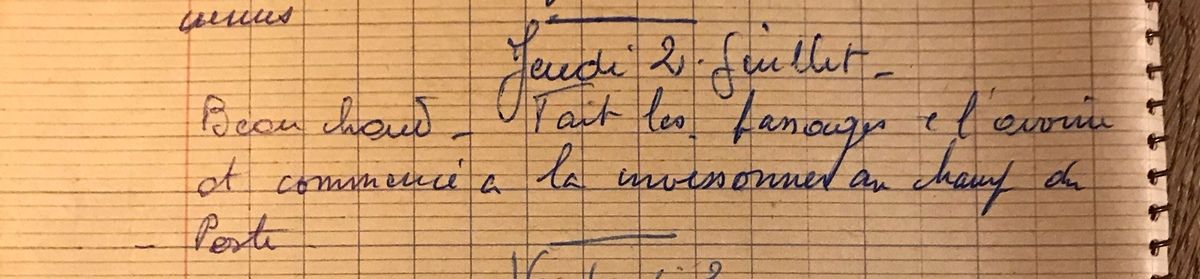 Jeudi 2. Juillet -
Beau chaud - Fait les passages à l'avoine
et commencé a la moissonner au champ du
- Poste